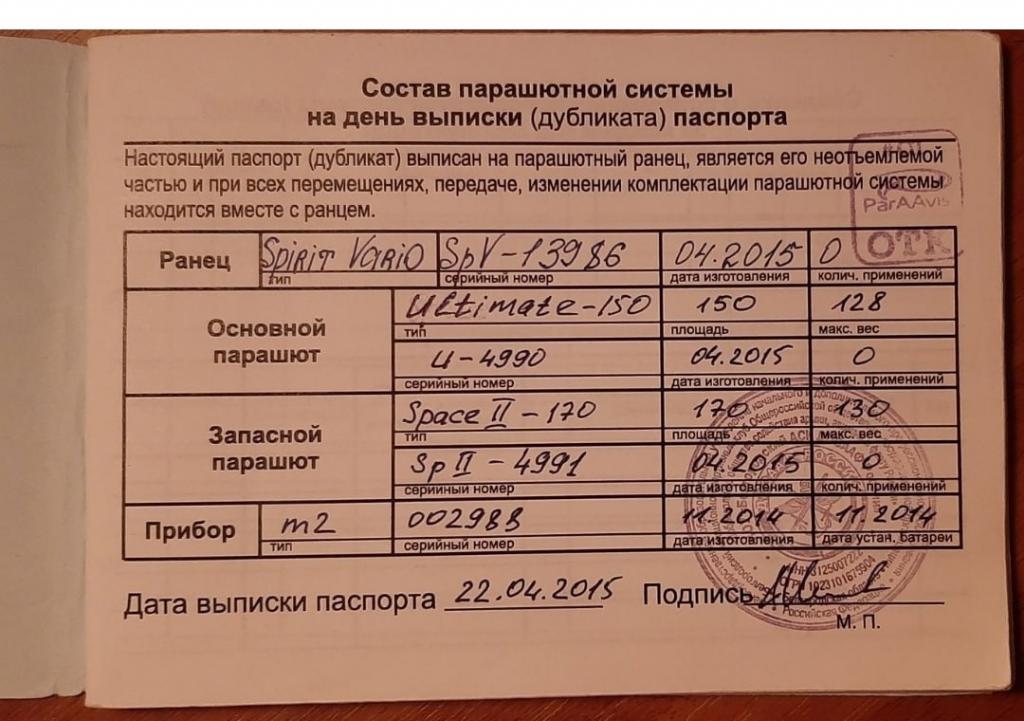 Состав парашютной системы
на день выписки (дубликата) паспорта
Настоящий паспорт (дубликат) выписан на парашютный ранец, является его неотъемлемой
частью и при всех перемещениях, передаче, изменении комплектации парашютной системы
находится вместе с ранцем.
ParAAvis
ОТК
Ранец Spirit Vario SpV-13986 04.2015 0
тип серийный номер дата изготовления колич. применений
Основной парашют
Ultimate-150 150 128
тип площадь макс. вес
U-4990 04.2015 0
серийный номер дата изготовления колич. применений
Запасной парашют
Space II-170 170 130
тип площадь макс. вес
Sp II-4991 04.2015 0
серийный номер дата изготовления колич. применений
Прибор m2 002988 11.2014 11.2014
тип серийный номер дата изготовления дата устан. батареи
Дата выписки паспорта 22.04.2015 Подпись
М. П.
ОГРН 1023101675904
Российская